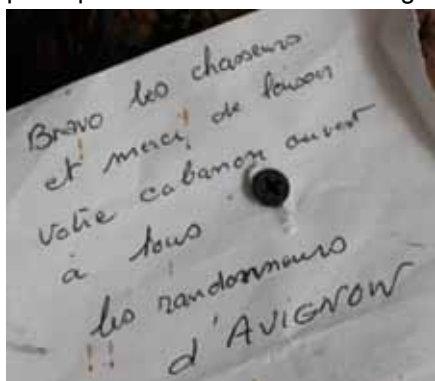 Bravo les chasseurs
et merci de laisser
votre cabanon ouvert
à tous
les randonneurs
d'AVIGNON
!!